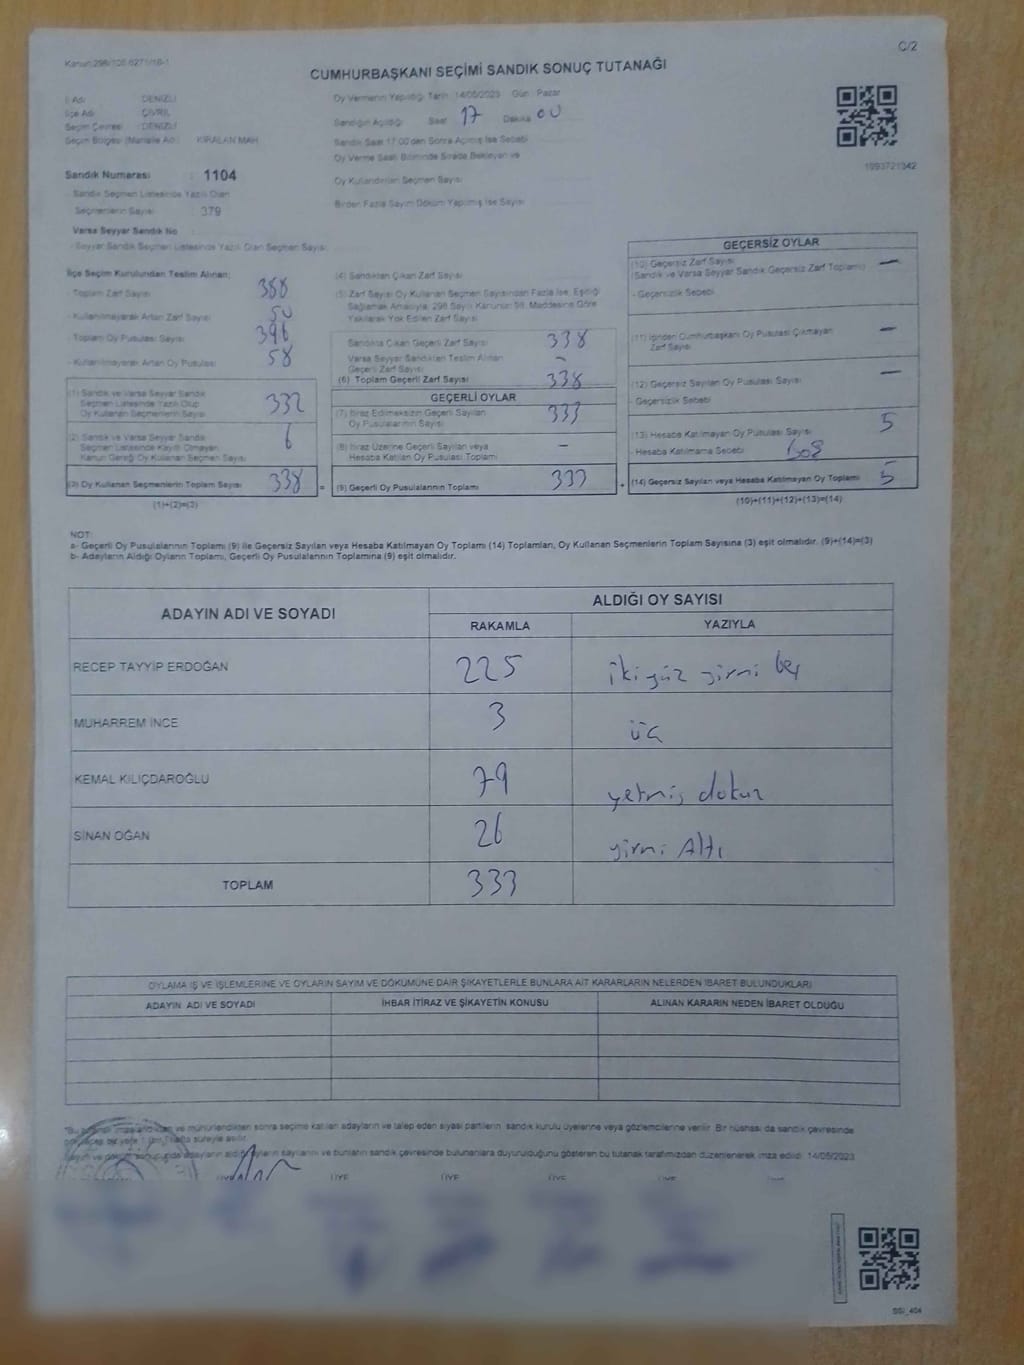 Kanun:298/105 6271/18-1
C/2
CUMHURBAŞKANI SEÇİMİ SANDIK SONUÇ TUTANAĞI
İl Adı : DENİZLİ
İlçe Adı : ÇİVRİL
Seçim Çevresi : DENİZLİ
Seçim Bölgesi (Mahalle Ad.) : KIRALAN MAH
Oy Vermenin Yapıldığı Tarih : 14/05/2023 Gün : Pazar
Sandığın Açıldığı Saat 17 Dakika 00
Sandık Saat 17:00'den Sonra Açılmış İse Sebebi
Oy Verme Saati Bitiminde Sırada Bekleyen ve
Oy Kullandırılan Seçmen Sayısı
Birden Fazla Sayım Döküm Yapılmış İse Sayısı
1993721342
Sandık Numarası : 1104
- Sandık Seçmen Listesinde Yazılı Olan
Seçmenlerin Sayısı : 379
Varsa Seyyar Sandık No
- Seyyar Sandık Seçmen Listesinde Yazılı Olan Seçmen Sayısı
İlçe Seçim Kurulundan Teslim Alınan:
- Toplam Zarf Sayısı 388
- Kullanılmayarak Artan Zarf Sayısı 50
- Toplam Oy Pusulası Sayısı 396
- Kullanılmayarak Artan Oy Pusulası 58
(1) Sandık ve Varsa Seyyar Sandık
Seçmen Listesinde Yazılı Olup
Oy Kullanan Seçmenlerin Sayısı 332
(2) Sandık ve Varsa Seyyar Sandık
Seçmen Listesinde Kayıtlı Olmayan
Kanun Gereği Oy Kullanan Seçmen Sayısı 6
(3) Oy Kullanan Seçmenlerin Toplam Sayısı 338 =
(1)+(2)=(3)
(4) Sandıktan Çıkan Zarf Sayısı
(5) Zarf Sayısı Oy Kullanan Seçmen Sayısından Fazla İse, Eşitliği
Sağlamak Amacıyla, 298 Sayılı Kanunun 98. Maddesine Göre
Yakılarak Yok Edilen Zarf Sayısı
Sandıkta Çıkan Geçerli Zarf Sayısı 338
Varsa Seyyar Sandıkten Teslim Alınan
Geçerli Zarf Sayısı -
(6) Toplam Geçerli Zarf Sayısı 338
GEÇERLİ OYLAR
(7) İtiraz Edilmeksizin Geçerli Sayılan
Oy Pusulalarının Sayısı 333
(8) İtiraz Üzerine Geçerli Sayılan veya
Hesaba Katılan Oy Pusulası Toplamı -
(9) Geçerli Oy Pusulalarının Toplamı 333 +
GEÇERSİZ OYLAR
(10) Geçersiz Zarf Sayısı
(Sandık ve Varsa Seyyar Sandık Geçersiz Zarf Toplamı) -
- Geçersizlik Sebebi
(11) İçinden Cumhurbaşkanı Oy Pusulası Çıkmayan
Zarf Sayısı -
(12) Geçersiz Sayılan Oy Pusulası Sayısı -
- Geçersizlik Sebebi
(13) Hesaba Katılmayan Oy Pusulası Sayısı 5
- Hesaba Katılmama Sebebi boş
(14) Geçersiz Sayılan veya Hesaba Katılmayan Oy Toplamı 5
(10)+(11)+(12)+(13)=(14)
NOT:
a- Geçerli Oy Pusulalarının Toplamı (9) ile Geçersiz Sayılan veya Hesaba Katılmayan Oy Toplamı (14) Toplamları, Oy Kullanan Seçmenlerin Toplam Sayısına (3) eşit olmalıdır. (9)+(14)=(3)
b- Adayların Aldığı Oyların Toplamı, Geçerli Oy Pusulalarının Toplamına (9) eşit olmalıdır.
ADAYIN ADI VE SOYADI
ALDIĞI OY SAYISI
RAKAMLA YAZIYLA
RECEP TAYYİP ERDOĞAN 225 iki yüz yirmi beş
MUHARREM İNCE 3 üç
KEMAL KILIÇDAROĞLU 79 yetmiş dokuz
SİNAN OĞAN 26 yirmi Altı
TOPLAM 333
OYLAMA İŞ VE İŞLEMLERİNE VE OYLARIN SAYIM VE DÖKÜMÜNE DAİR ŞİKAYETLERLE BUNLARA AİT KARARLARIN NELERDEN İBARET BULUNDUKLARI
ADAYIN ADI VE SOYADI İHBAR İTİRAZ VE ŞİKAYETİN KONUSU ALINAN KARARIN NEDEN İBARET OLDUĞU
ve mühürlendikten sonra seçime katılan adayların ve talep eden siyasi partilerin sandık kurulu üyelerine veya gözlemcilerine verilir. Bir nüshası da sandık çevresinde
süreyle asılır.
adayların aldığı oyların sayılarını ve bunların sandık çevresinde bulunanlara duyurulduğunu gösteren bu tutanak tarafımızdan düzenlenerek imza edildi. 14/05/2023
ÜYE ÜYE ÜYE ÜYE
SSİ_404